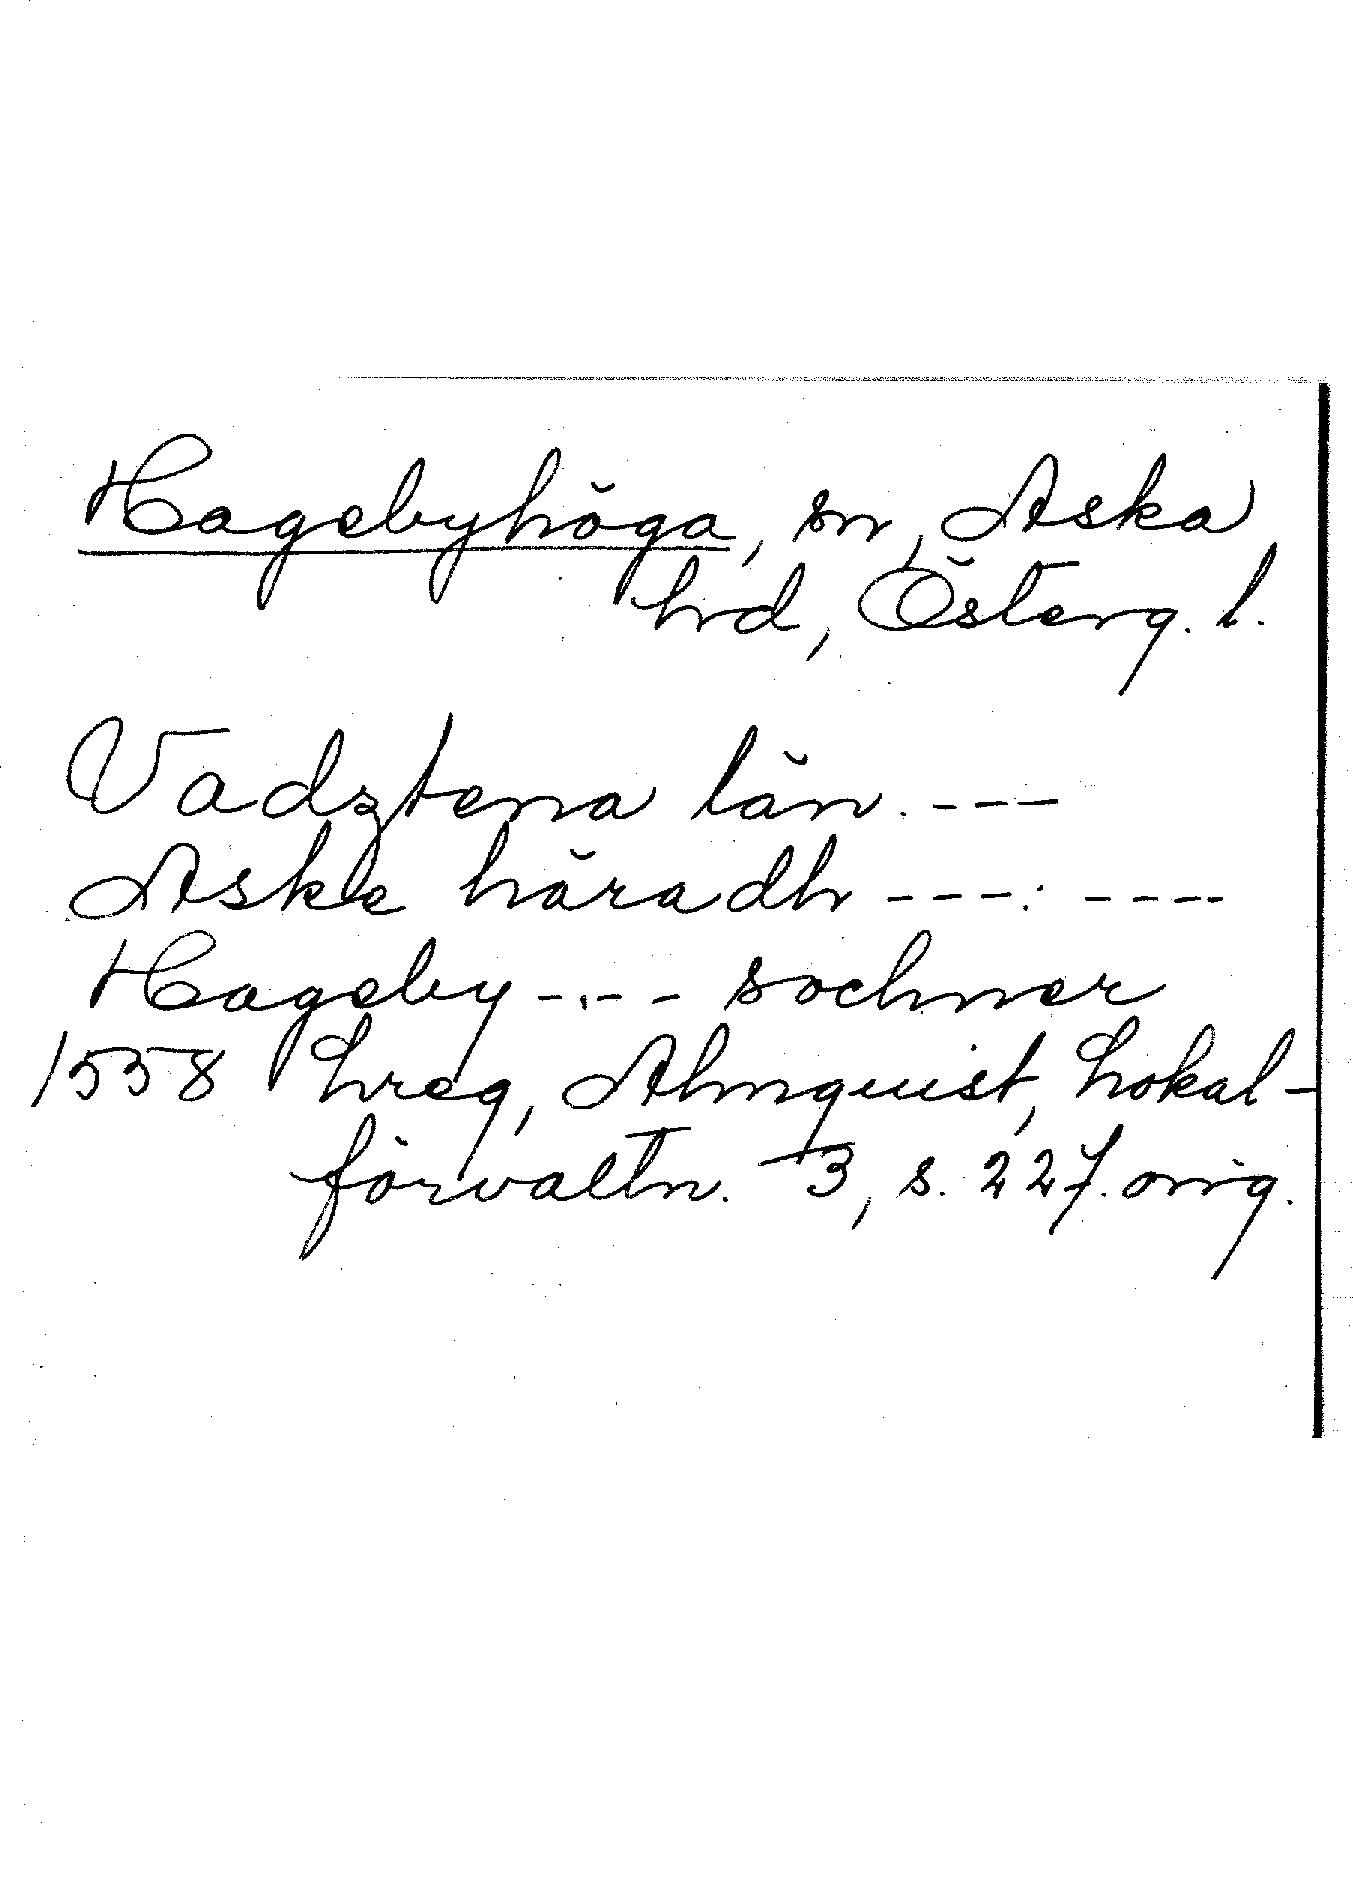 Hagebyhöga, sn, Aska
hrd, Österg. l.
Vadztena län. ---
Aske häradh ---: ----
Hageby ---- sochner
1558 hreg, Almquist, Lokal-
förvaltn. 3, s. 227. orig.